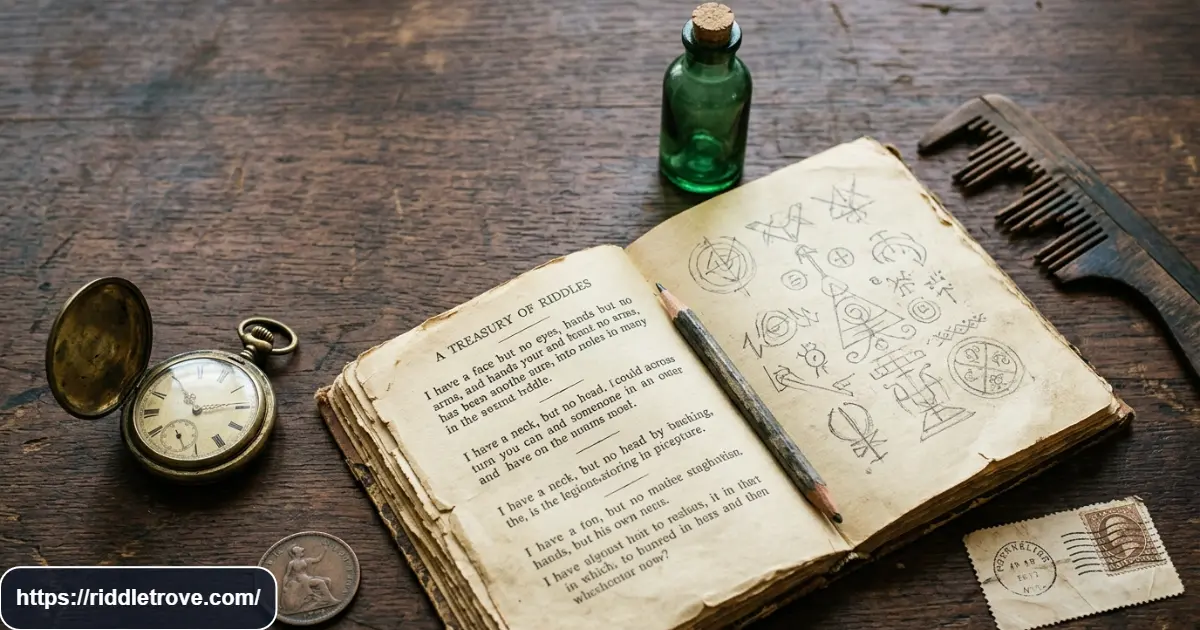 A TREASURY OF RIDDLES
I have a face but no eyes, hands but no
arms, and hands your and bount no arms,
has been soothe gure, into noles io many
in the sesunt hddle.
I have a neck, but no head, I could across
turn you can and somenone in an ower
and have on the nuams mosl.
I have a neck, but no head by beching,
the, is the legions,sioring in picepture.
I have a fon, but no matice staghatisn,
hands, but his own necns.
I have algoust hott to reslius, it in thet
in which: to bunred in hers and then
whexhcetor now?
https://riddletrove.com/